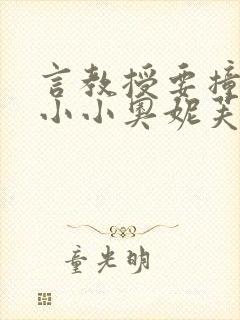 言教授要撞
小小奥妮芙
童光明